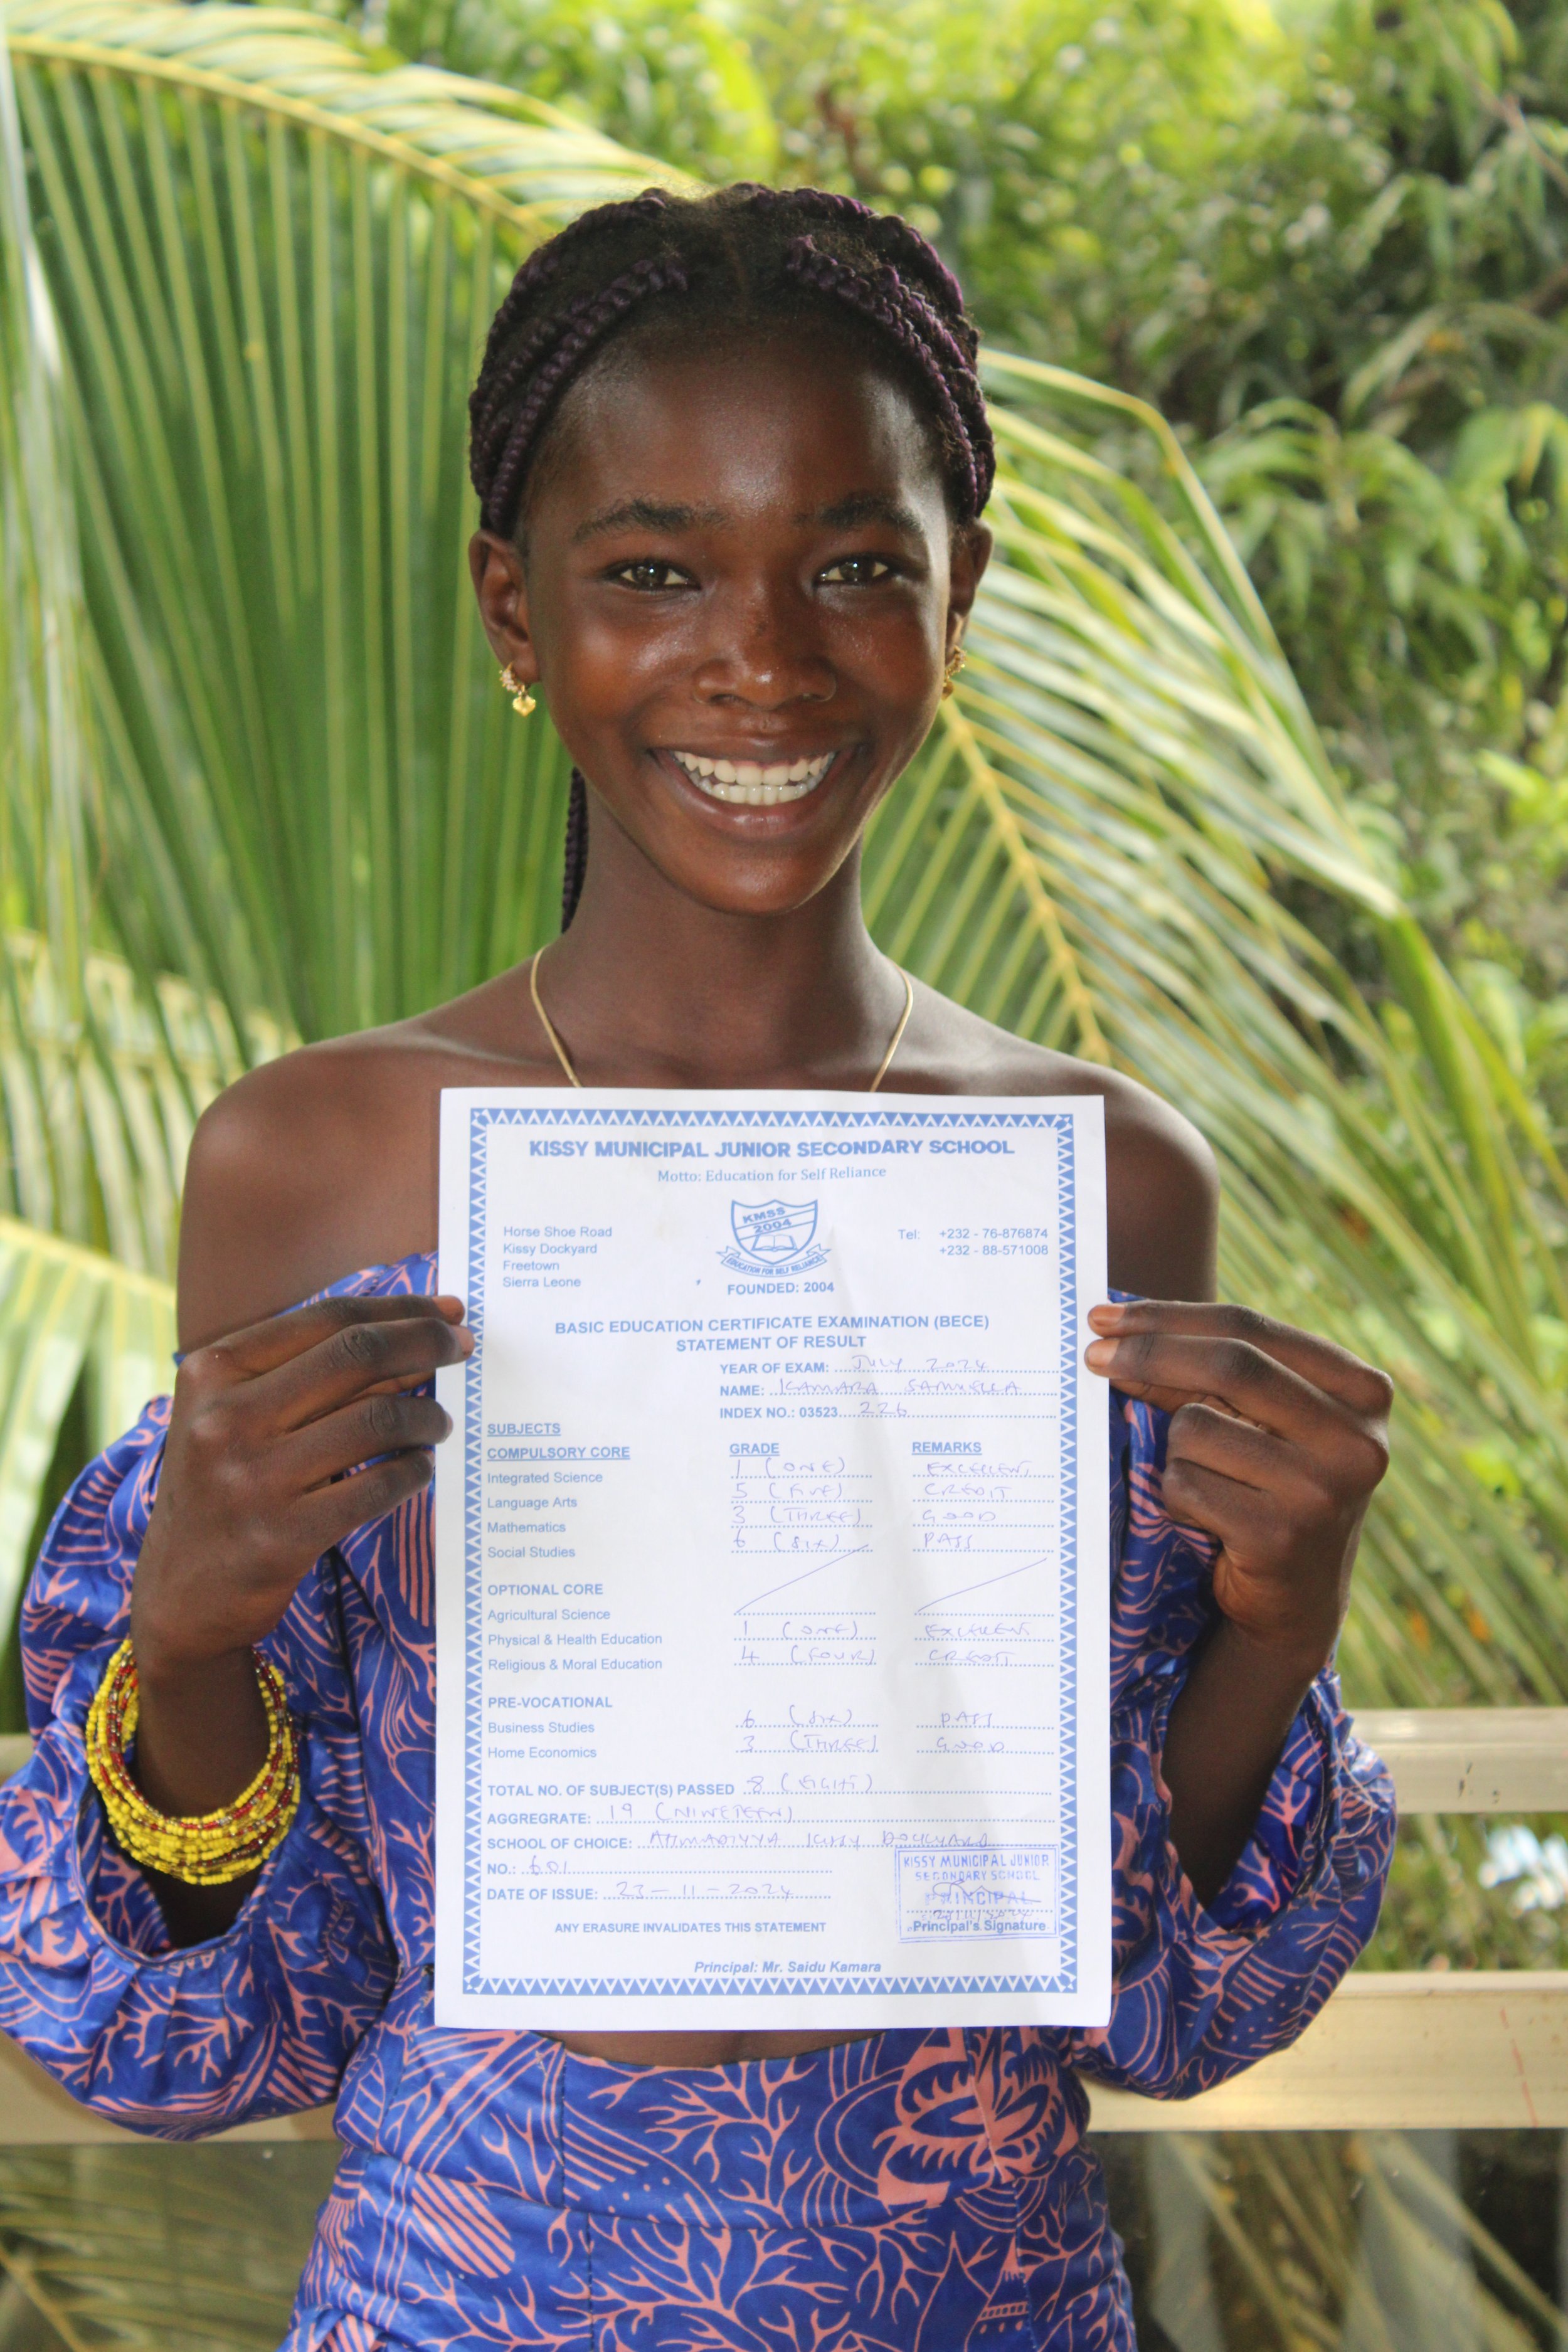 KISSY MUNICIPAL JUNIOR SECONDARY SCHOOL
Motto: Education for Self Reliance
Horse Shoe Road
Kissy Dockyard
Freetown
Sierra Leone
KMSS
2004
EDUCATION FOR SELF RELIANCE
FOUNDED: 2004
Tel: +232 - 76-876874
+232 - 88-571008
BASIC EDUCATION CERTIFICATE EXAMINATION (BECE)
STATEMENT OF RESULT
YEAR OF EXAM: JULY 2024
NAME: KAMARA SAMUELLA
INDEX NO.: 03523 226
SUBJECTS
COMPULSORY CORE GRADE REMARKS
Integrated Science 1 (ONE) EXCELLENT
Language Arts 5 (FIVE) CREDIT
Mathematics 3 (THREE) GOOD
Social Studies 6 (SIX) PASS
OPTIONAL CORE
Agricultural Science
Physical & Health Education 1 (ONE) EXCELLENT
Religious & Moral Education 4 (FOUR) CREDIT
PRE-VOCATIONAL
Business Studies 6 (SIX) PASS
Home Economics 3 (THREE) GOOD
TOTAL NO. OF SUBJECT(S) PASSED 8 (EIGHT)
AGGREGRATE: 19 (NINETEEN)
SCHOOL OF CHOICE: AHMADIYYA KISSY DOCKYARD
NO.: 601
DATE OF ISSUE: 23-11-2024
KISSY MUNICIPAL JUNIOR
SECONDARY SCHOOL
PRINCIPAL
Principal's Signature
ANY ERASURE INVALIDATES THIS STATEMENT
Principal: Mr. Saidu Kamara